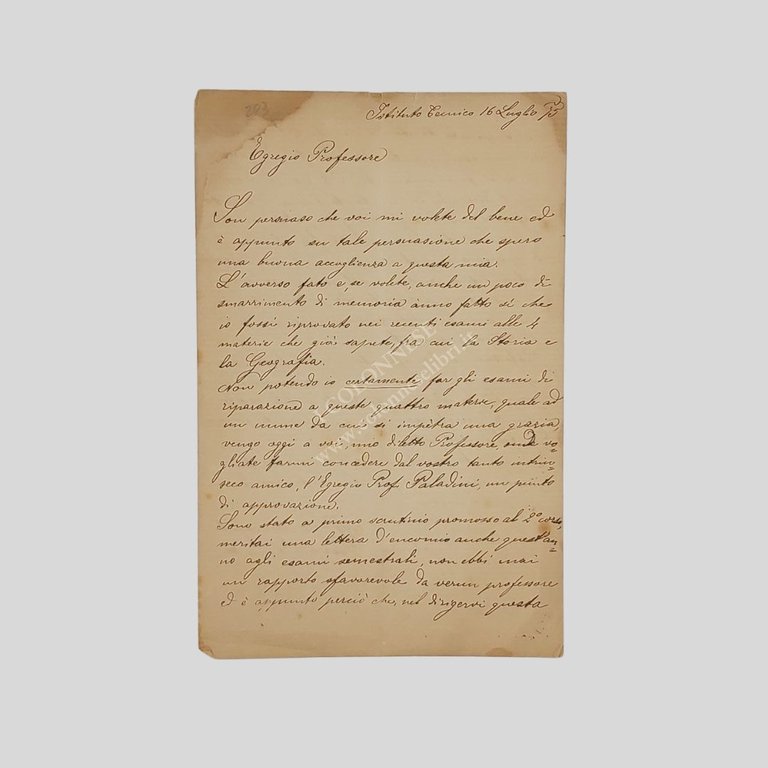 203
Istituto Tecnico 16 Luglio
Egregio Professore
Son persuaso che voi mi volete del bene ed
è appunto su tale persuasione che spero
una buona accoglienza a questa mia.
L'avverso fato e, se volete, anche un poco di
smarrimento di memoria ànno fatto sì che
io fossi riprovato nei recenti esami alle 4
materie che già sapete, fra cui la Storia e
la Geografia.
Non potendo io certamente far gli esami di
riparazione a queste quattro materie, quale ad
un nume da cui si impètra una grazia,
vengo oggi a voi, mio diletto Professore, onde vo=
gliate farmi concedere dal vostro tanto intrin=
seco amico, l'Egregio Prof Paladini, un punto
di approvazione.
Sono stato a primo scrutinio promosso al 2° corso,
meritai una lettera d'encomio anche quest'an=
no agli esami semestrali, non ebbi mai
un rapporto sfavorevole da verun professore
ed è appunto perciò che, nel dirigervi questa
COLONNESE
www.colonneselibri.it